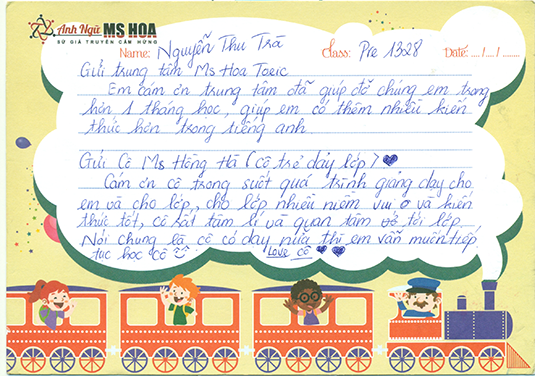 Anh Ngữ MS HOA
SỨ GIẢ TRUYỀN CẢM HỨNG
Name: Nguyễn Thu Trà Class: Pre 1328 Date: ..../..../........
Gửi trung tâm Ms Hoa Toeic
Em cảm ơn trung tâm đã giúp đỡ chúng em trong
hơn 1 tháng học, giúp em có thêm nhiều kiến
thức hơn trong tiếng anh.
Gửi Cô Ms Hồng Hà (cô trẻ dạy lớp) ♥
Cảm ơn cô trong suốt quá trình giảng dạy cho
em và cho lớp, cho lớp nhiều niềm vui ơ và kiến
thức tốt, cô rất tâm lí và quan tâm tới lớp.
Nói chung là cô có dạy nữa thì em vẫn muốn tiếp
tục học cô Love cô ♥ ♥